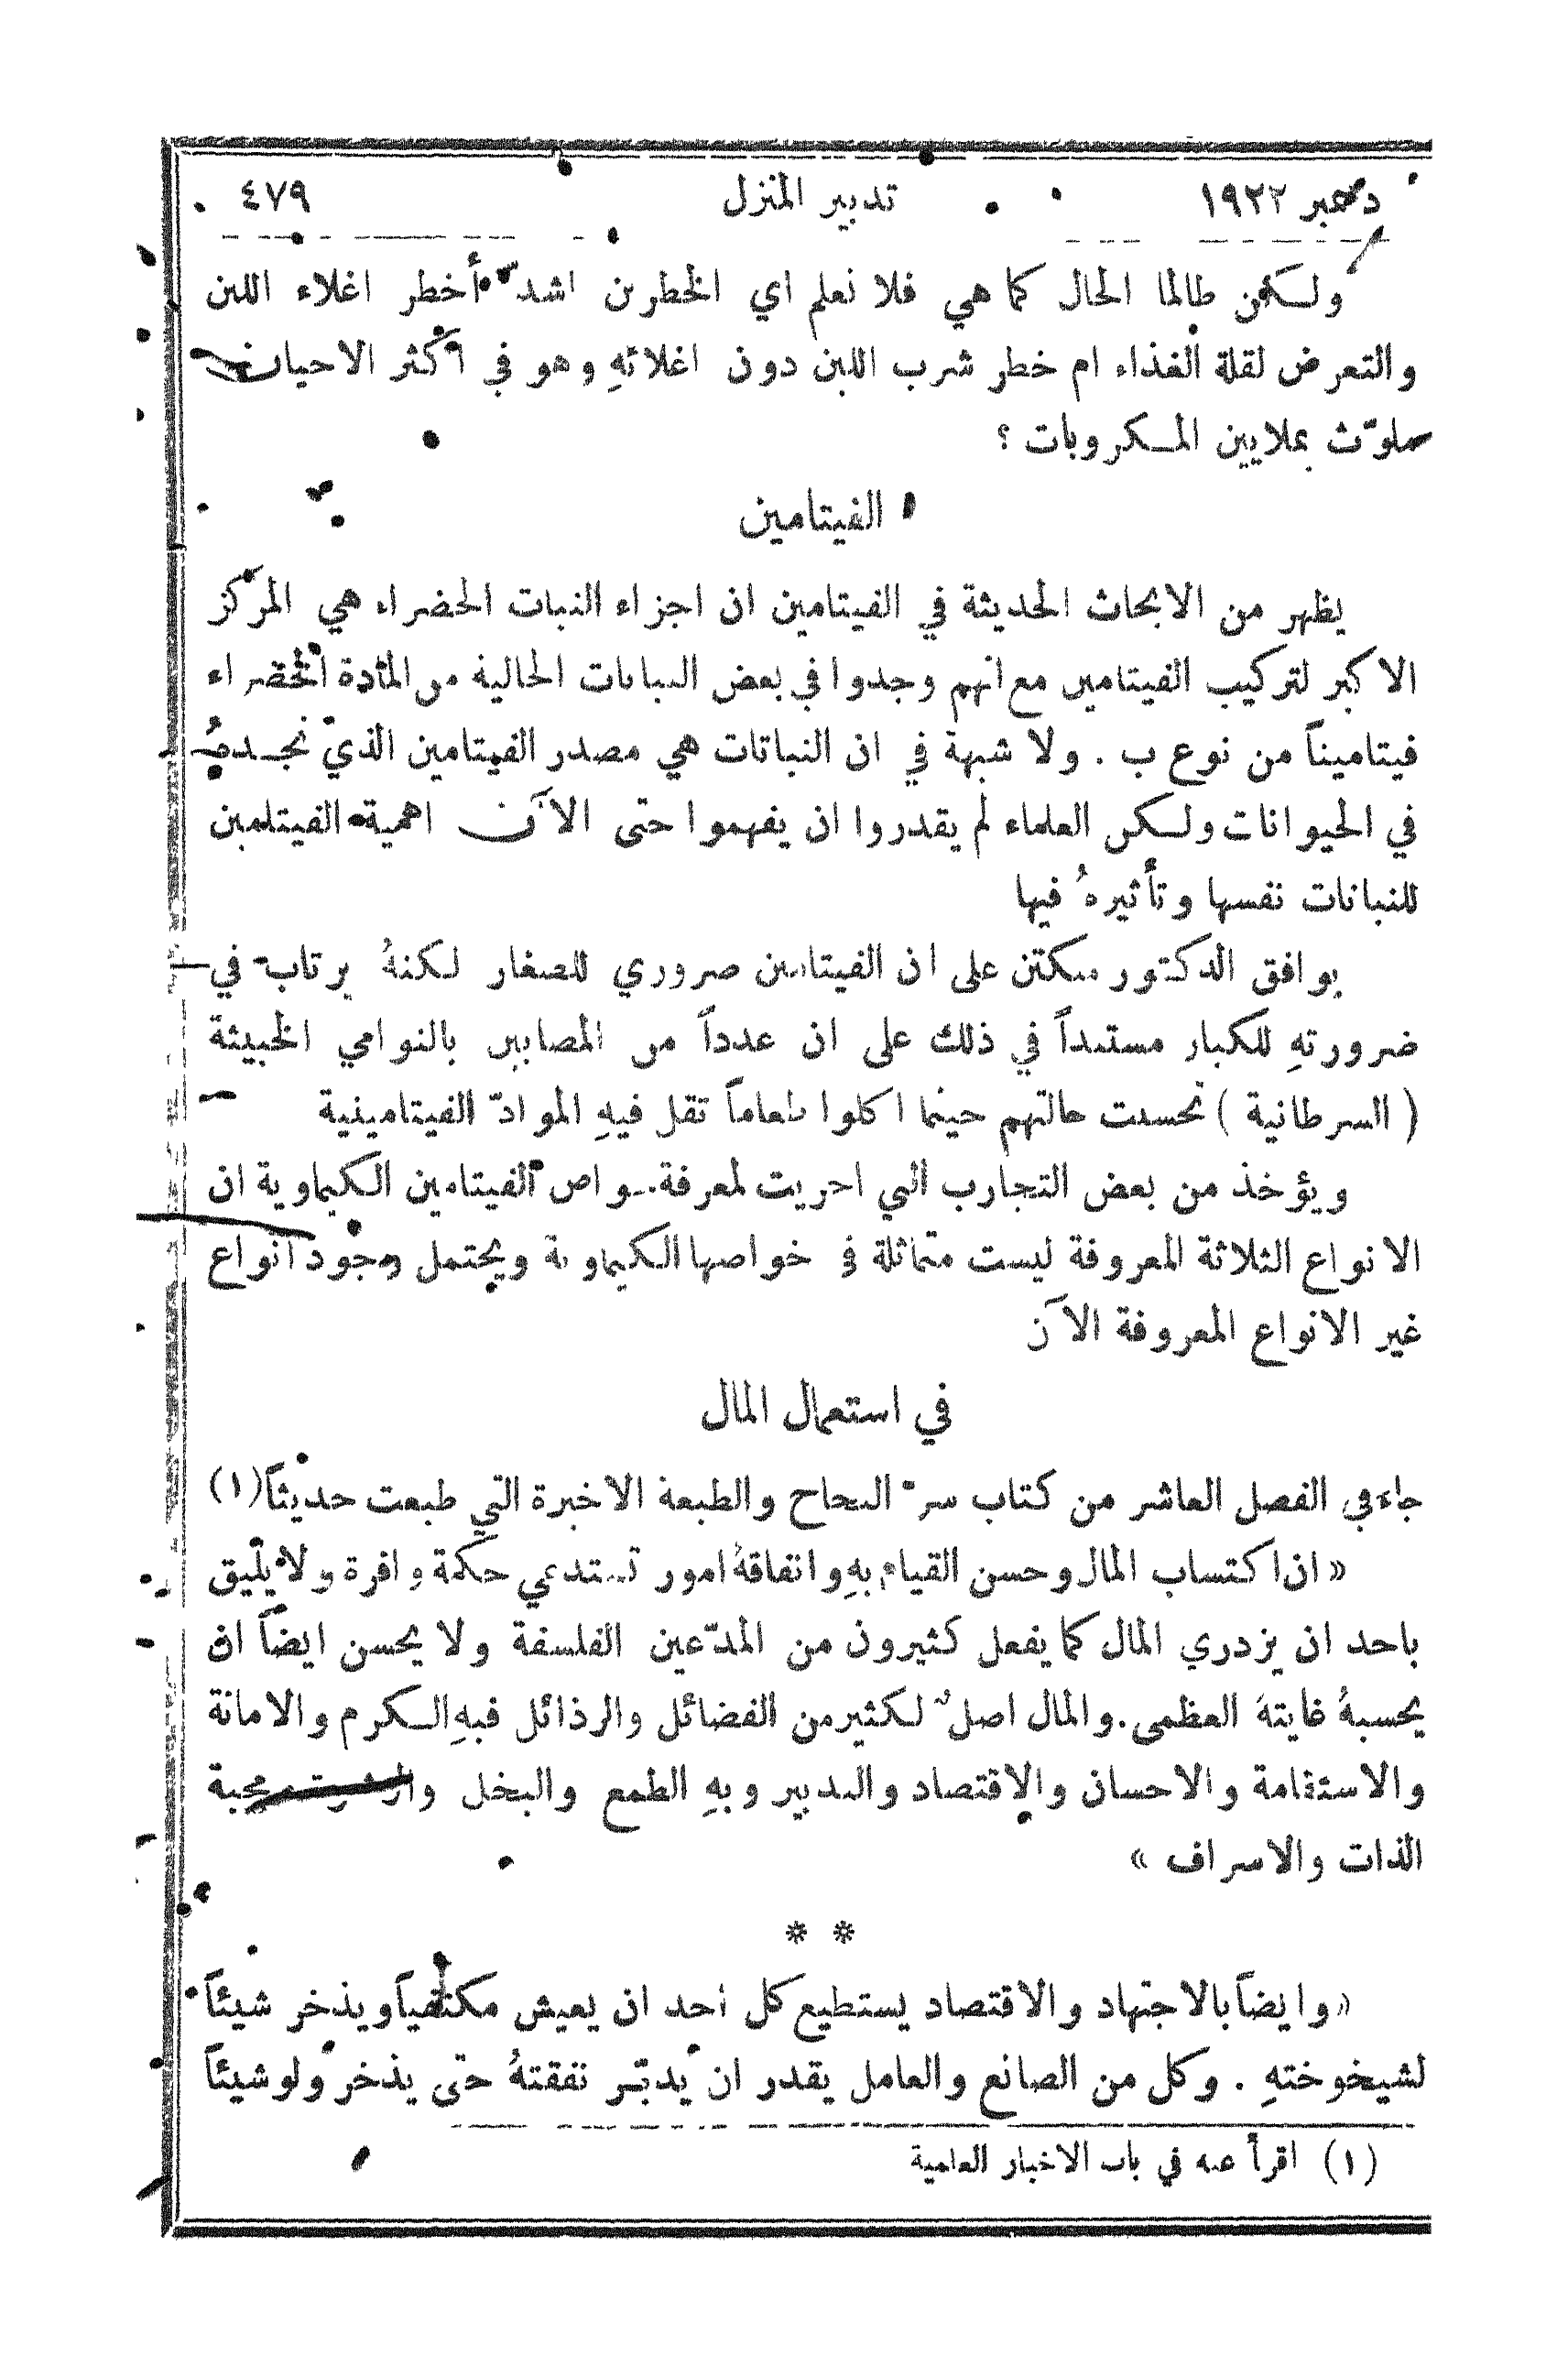 دسمبر ١٩٢٢ تدبير المنزل ٤٧٩
ولكن طالما الحال كما هي فلا نعلم اي الخطرين اشدّ أخطر اغلاء اللبن
والتعرض لقلة الغذاء ام خطر شرب اللبن دون اغلائهِ وهو في اكثر الاحيان
ملوّث بملايين المكروبات ؟
الفيتامين
يظهر من الابحاث الحديثة في الفيتامين ان اجزاء النبات الخضراء هي المركز
الاكبر لتركيب الفيتامين مع انهم وجدوا في بعض النباتات الخالية من المادة الخضراء
فيتاميناً من نوع ب . ولا شبهة في ان النباتات هي مصدر الفيتامين الذي نجدهُ
في الحيوانات ولكن العلماء لم يقدروا ان يفهموا حتى الآن اهمية الفيتامين
للنباتات نفسها وتأثيرهُ فيها
يوافق الدكتور مكتن على ان الفيتامين ضروري للصغار لكنهُ يرتاب في
ضرورتهِ للكبار مستنداً في ذلك على ان عدداً من المصابين بالنوامي الخبيثة
( السرطانية ) تحسنت حالتهم حينما اكلوا طعاماً تقل فيهِ الموادّ الفيتامينية
ويؤخذ من بعض التجارب التي اجريت لمعرفة خواص الفيتامين الكيماوية ان
الانواع الثلاثة المعروفة ليست متماثلة في خواصها الكيماوية ويحتمل وجود انواع
غير الانواع المعروفة الآن
في استعمال المال
جاء في الفصل العاشر من كتاب سر النجاح والطبعة الاخيرة التي طبعت حديثاً (١)
« ان اكتساب المال وحسن القيام بهِ وانفاقهُ امور تستدعي حكمة وافرة ولا يليق
باحد ان يزدري المال كما يفعل كثيرون من المدّعين الفلسفة ولا يحسن ايضاً ان
يحسبهُ غايتهَ العظمى . والمال اصلٌ لكثير من الفضائل والرذائل فبهِ الكرم والامانة
والاستقامة والاحسان والاقتصاد والتدبير وبهِ الطمع والبخل محبة
الذات والاسراف »
* *
« وايضاً بالاجتهاد والاقتصاد يستطيع كل احد ان يعيش مكتفياً ويذخر شيئاً
لشيخوختهِ . وكل من الصانع والعامل يقدر ان يدبّر نفقتهُ حتى يذخر ولو شيئاً
(١) اقرأ عنه في باب الاخبار العلمية